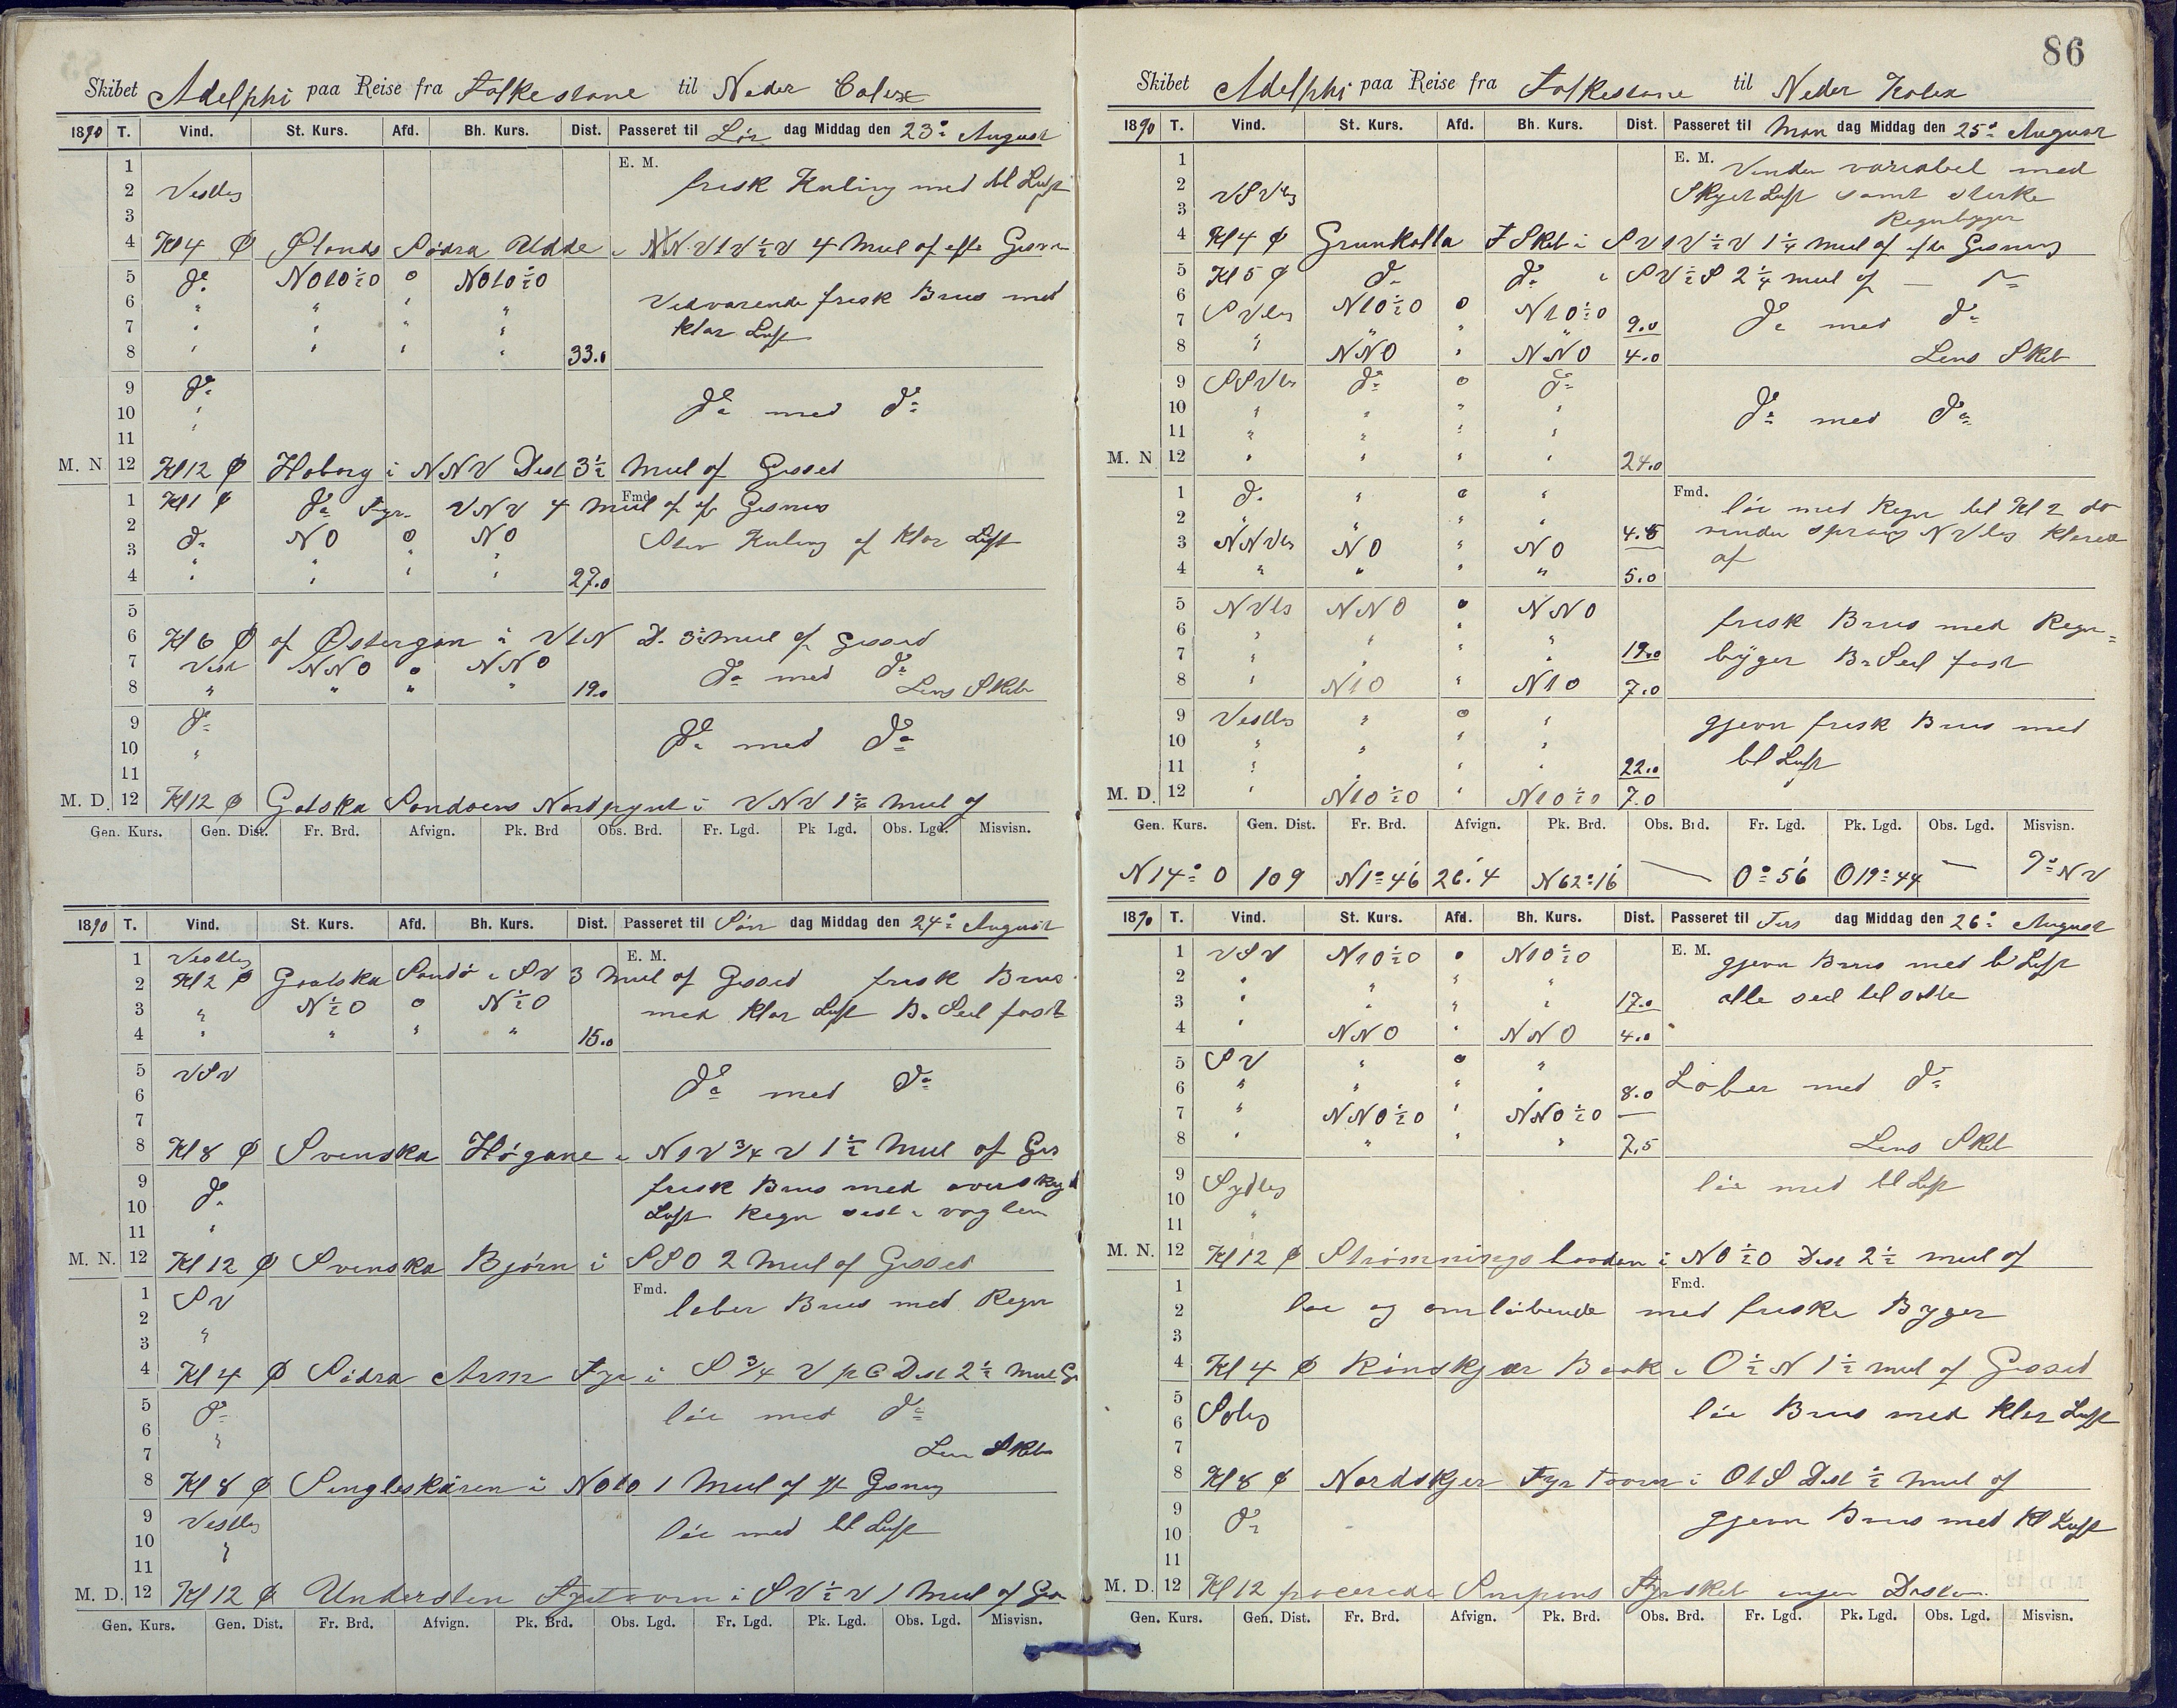 Skibet Adelphi paa Reise fra Folkestone til Neder Calix
1890 T. Vind. St. Kurs. Afd. Bh. Kurs. Dist. Passeret til Lör dag Middag den 23de August
1 E. M.
2 Vestlig frisk Kuling med bl Luft
3
4 Kl 4 φ Ölands Södra Udde i 4 Miil af efte Gisni
5 do NOtO½O 0 NOtO½O
6 " " " " Vedvarende frisk Bris med
7 " " " " klar Luft
8 " " " " 33.0
9 do
10 " do med do
11 "
M. N 12 Kl 12 φ Hoborg i NNV Dist 3½ Miil af Gisset
1 Kl 1 φ do Fyr VNV 4 Miil af Gisnis
Fmd.
2 do NO 0 NO Stiv Kuling af klar Luft
3 " " " "
4 " " " " 27.0
5
6 Kl 6 φ af Østergan i VtN D. 3½ Miil af Gissed
7 Vest NNO 0 NNO do med do
8 " " " " 19.0 Lens Skib
9 do
10 " do med do
11
M. D. 12 Kl 12 φ Gotska Sandoens Nordpynt i VNV 1¼ Miil af
Gen. Kurs. Gen. Dist. Fr. Brd. Afvign. Pk. Brd Obs. Brd. Fr. Lgd. Pk Lgd. Obs. Lgd. Misvisn.
1890 T. Vind. St. Kurs. Afd. Bh. Kurs. Dist. Passeret til Sön dag Middag den 24de August
1 Vestlig E. M.
2 Kl 2 φ Gotska Sandö i SV 3 Miil af Gissed frisk Bris
3 " N½O 0 N½O med klar Luft B. Seil fast
4 " " " " 15.0
5 VSV
6 do med do
7
8 Kl 8 φ Svenska Högane i NtV ¾ V 1½ Miil af Gis
9 frisk Bris med overskyd
10 do Luft Regn sist i vagten
11 "
M. N. 12 Kl 12 φ Svenska Björn i SSO 2 Miil af Gisset
1 SV Fmd.
2 løber Bris med Regn
3 "
4 Kl 4 φ Södra Arm Fyr i S ¾ V p C Dist 2½ Miil G
5 do löi med do
6 "
7 Len Skib
8 Kl 8 φ Singleskären i NOtO 1 Miil af Gisning
9 Vestlig
10 " löi med bl Luft
11
M. D. 12 Kl 12 φ Understen Fyrtaarn i SV½V 1 Miil af Gis
Gen. Kurs. Gen. Dist. Fr. Brd. Afvign. Pk. Brd. Obs. Lgd. Fr. Lgd. Pk. Lgd. Obs. Lgd. Misvisn.
86
Skibet Adelphi paa Reise fra Folkestone til Neder Kalex
1890 T. Vind. St. Kurs. Afd. Bh. Kurs. Dist. Passeret til Man dag Middag den 25de August
1 E. M. Vinden variabel med
2 VSVlig Skyet Luft samt sterke
3 Regnbyger
4 Kl 4 φ Grunkalla F Skib i SVtV½V 1¼ Miil af efter Gisning
5 Kl 5 φ do do i SV½S 2¼ miil af — do
6 SVlig NtO½O 0 NtO½O
7 " " 9.0 do med do
8 " NNO " NNO 4.0 Lens Skib
9 SSVlig do 0 do
10 " " " " do med do
11 " " " "
M. N 12 " " " " 24.0
1 do " 0 " Fmd. löi med Regn til Kl 2 da
2 " " " " 4.5 vinden sprang NVlig klarede
3 NNVlig NO " NO af
4 " " " " 5.0
5 NVlig NNO 0 NNO
6 " " " " frisk Bris med Regn-
7 " " " " 19.0 byger B. Seil fast
8 " NtO " NtO 7.0
9 Vestlig " 0 " gjevn frisk Bris med
10 " " " " bl Luft
11 " " " 22.0
M. D. 12 " NtO½O " NtO½O 7.0
Gen. Kurs. Gen. Dist. Fr. Brd. Afvign. Pk. Brd. Obs. Brd. Fr. Lgd. Pk. Lgd. Obs. Lgd. Misvisn.
N 14° O 109 N 1° 46' 26'.4 N 62° 16' — O° 56' O 19° 44 — 9° NV
1890 T. Vind. St. Kurs. Afd. Bh. Kurs. Dist. Passeret til Tirs dag Middag den 26de August
1 VSV NtO½O 0 NtO½O E. M. gjevn Bris med bl Luft
2 " " " "
3 " " " " 17.0 alle seil tilsatte
4 " NNO " NNO 4.0
5 SV " 0 "
6 " " " " 8.0 Løber med do
7 " NNO½O " NNO½O
8 " " " " 7,5 Lens Skib
9 Sydlig löi med bl Luft
10
11 "
M. N. 12 Kl 12 φ Strömningsbaaden i NO½O Dist 2½ miil af
1 Fmd.
2 löi og omlöbende med friske Byger
3
4 Kl 4 φ Rönskjær Baak i O½N 1½ miil af Gissed
5
6 Solig löi Bris med klar Luft
7
8 Kl 8 φ Nordskjer Fyrtaarn i OtS Dist ½ miil af
9 do gjevn Bris med Kl Luft
10
11
M. D. 12 Kl 12 pacerede Snipens Fyrskib ingen Distan.
Gen. Kurs. Gen. Dist. Fr. Brd. Afvign. Pk. Brd. Obs. Brd. Fr. Lgd. Pk. Lgd. Obs. Lgd. Misvisn.